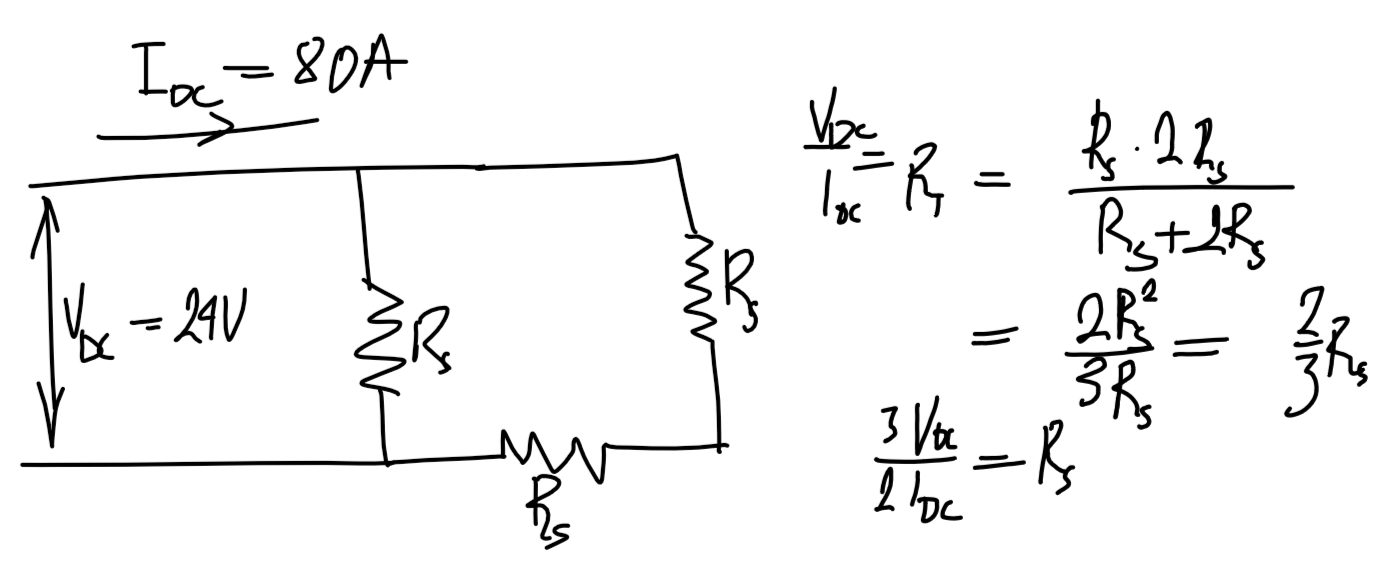 I_DC = 80A
V_DC = 24V
R_s
R_s
R_s
V_DC / I_DC = R_T = R_s · 2R_s / R_s + 2R_s
= 2R_s² / 3R_s = 2/3 R_s
3V_DC / 2I_DC = R_s